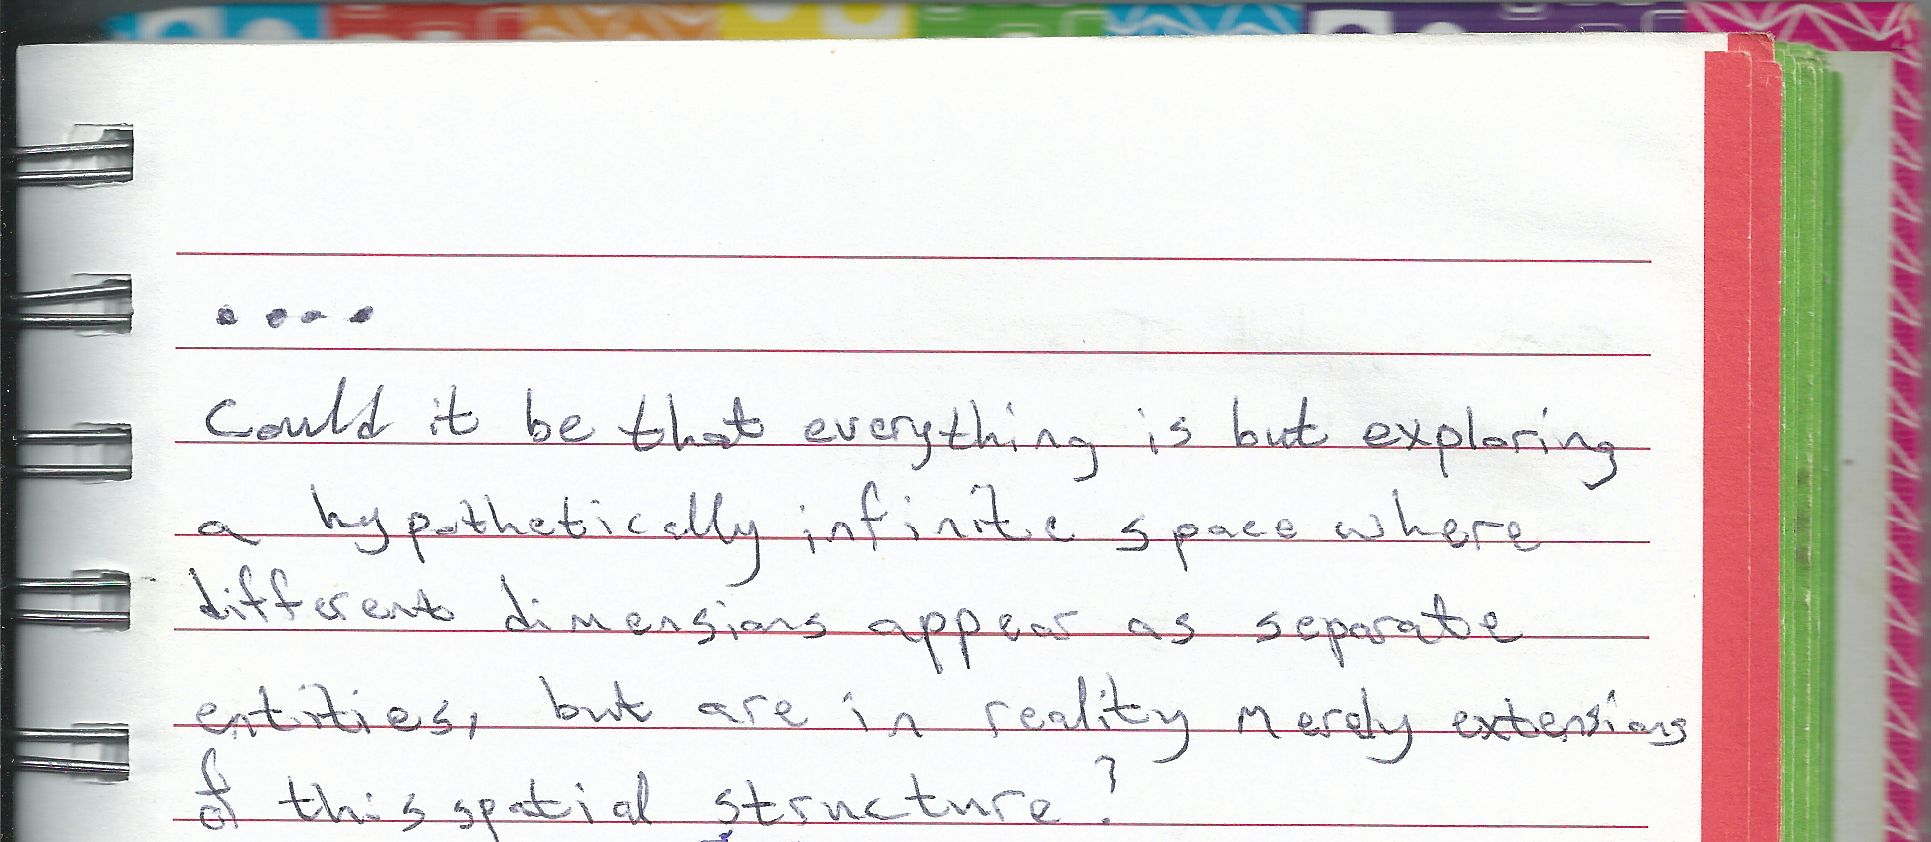 ....
Could it be that everything is but exploring
a hypothetically infinite space where
different dimensions appear as separate
entities, but are in reality merely extensions
of this spatial structure?